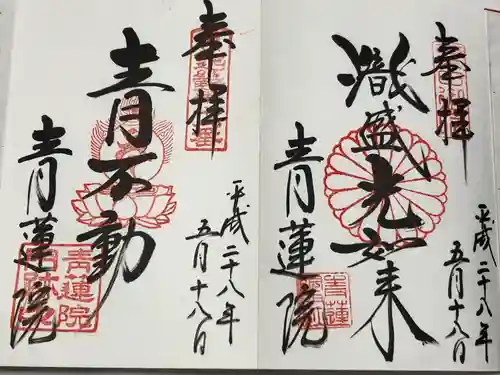 奉拝
熾盛光如来
青蓮院
平成二十八年
五月十八日
奉拝
青不動
青蓮院
平成二十八年
五月十八日